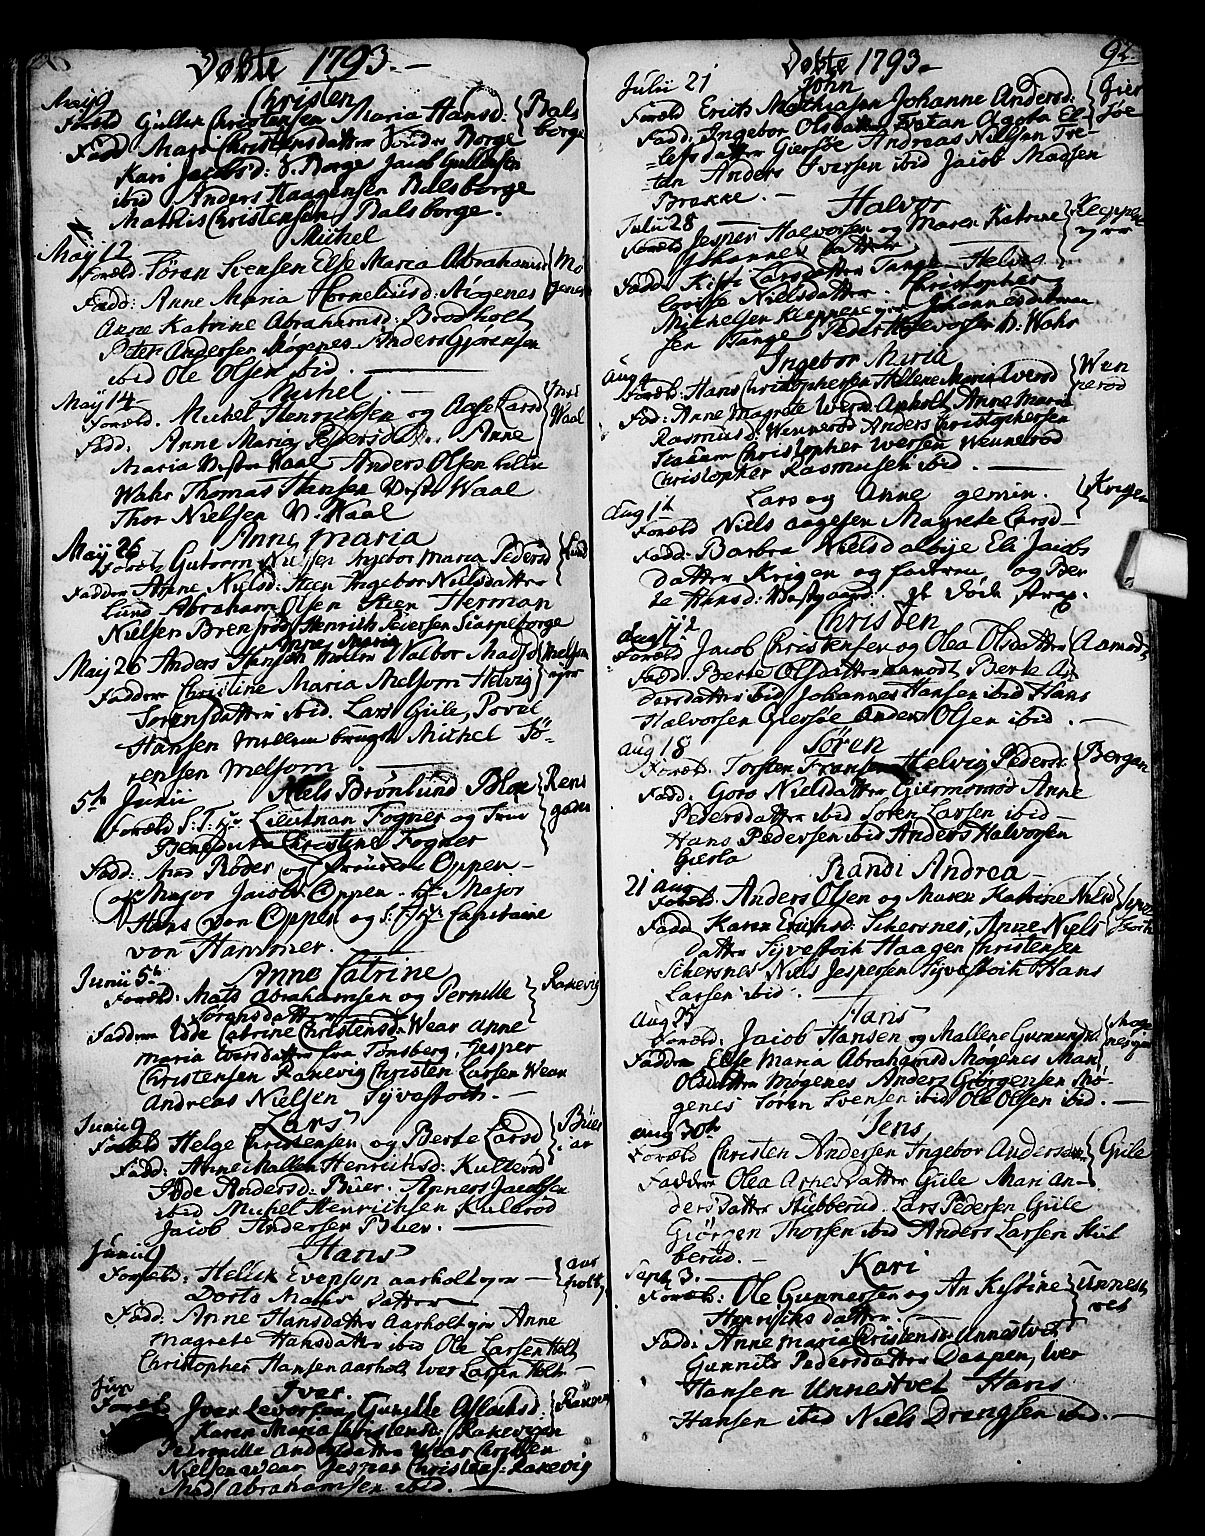 Döbte 1793.-
Christen
May 9
Foreld Gullek Christensen Maria Hansd: Bals
borge
Fadd Mari Christensdatter Borge
Kari Jacobsd: V. Borge Jacob Gullichsen
ibid Anders Haagensen Balsborge
Mathis Christensen Balsborge.
Michel
May 12
Foreld: Sören Svensen Else Maria Abrahamsd Mö
genes
Fadd: Anne Maria Corneliusd: Mögenes
Anne Katrine Abrahamsd: Brodholt
Peter Andersen Mögenes Anders Gjörensen
ibid Ole Olsen ibid.
Michel
May 14
Foreld. Michel Henrichsen og Aase Larsd
Waal
Fadd: Anne Maria Pedersd. Anne
Maria Vestre Waal Anders Olsen
Wahr Thomas Hansen Vestre Waal
Thor Nielsen V. Waal
Anne Maria
May 26
Foreld Gutorm Nielsen Ingebor Maria Pedersd Lund
Fadder Anne Nielsd: Steen Ingebor Nielsdatter
Lund Abraham Olsen Steen Herman
Nielsen Brensrod Henrich Seversen Starpeborge
Anne Maria
May 26 Anders Hansen Valbor Madsd Melsom
eyer
Faddere Christine Maria Melsom Helvig
Sorensdatter ibid. Lars Güile, Povel
Hansen Mellem Michel Sö-
rensen Melsom
5th Junii Niels Brönlund Blox Rens
gader
Foreld S: T: Hr Lieutnan Fogner og Frue
Benedicta Christine Fogner
Fadd: Röder og fröuken Oppen-
Major Jacob Oppen. Hr Major
Hans von Oppen og S: T: Hr Capitaine
von Hammer.
Junii 5th Anne Catrine
Foreld: Mads Abrahamsen og Pernille Rakevig
Jörgnsdatter
Fadder Edde Catrine Christensd: Wear Anne
Maria Evarsdatter fra Tönsberg, Jesper
Christensen Rakevig Christen Larsen Wear
Andreas Nielsen Tyvestoch.-
Junii 9 Lars
Foreld Helge Christensen og Berte Larsd Büer
Fadd: Anne Mallen Henrichsd: Kulleröd
Anders: Büer. Anners Jacobsen
ibid Michel Henrichsen Kulleröd
Jacob Andersen Büer.
Junii 9 Hans
Foreld: Hellek Evensen Aarholt eyer Aar
holt
Dorte Mads datter
Fadd: Anne Hansdatter Aarholt Anne
Magrete Hansdatter ibid Ole Larsen Holt
Christopher Hansen Aarholt Iver Larsen Holt
Jun Iver.
Foreld Iver Levorsen Gunille Aslachsd: Rakevig
Karen Maria Christensd: Rakevigen
Pernille Andersdatter Wear Christen
Nielsen Wear Jesper Christens: Rakevig
Mads Abrahamsen ibid.
Döbte 1793.
92
John
Julii 21
Foreld Erich Mathiasen Johanne Andersd: Gier
söe
Fadd: Ingebor Olsdatter Tvetan Ageta El-
lefsdatter Giersöe Andreas Nielsen Tve-
tan Anders Iversen ibid Jacob Madsen
Brekke.
Halvor
Julii 28
Foreld Jesper Halvorsen og Maren Katrine Kleppene
eyer
Johannes datter
Fadd: Kisti Larsdatter Tange Helvig
Lovise Nielsdatter. Christopher
Michelsen Kleppene eyer Johannes
sen Tange Peder Halvorsen N: Wahr
Ingebor Maria
Aug 4
Foreld: Hans Christophersen Hellene Maria Iversd Wen
neröd
Fad: Anne Magrete Anholt Anne Maria
Rasmusd: Wenneröd Anders Christophersen
Christopher Iversen Wenneröd
Christopher Rasmusen ibid.
Lars og Anne gemin. Krigen
Aug 11
Foreld Niels Aagesen Magrete Larsd-
Fadd: Barbra Nielsd Albye Eli Jacobs
datter Krigen og faderen og Ber
te Hansd: döde strax.
Christen
Aug 12
Foreld Jacob Christensen og Olea Olsdatter Aamodt
Fadd: Berte Olsdatter Aamodt, Berte An
dersdatter ibid Johannes Hansen ibid Hans
Halvorsen Giersöe Anders Olsen ibid.
Aug 18 Sören
Foreld: Torsten Fransen Helvig Pedersd: Bergan
Fadd: Goro Nielsdatter Giermonröd Anne
Pedersdatter ibid Sören Larsen ibid-
Hans Pedersen ibid Anders Halvorsen
Gierla
Randi Andrea
21 Aug
Foreld: Anders Olsen og Maren Katrine Nielsd
Fadd Karen Erichsd: Schersnes, Anne Niels
datter Tyvestoch Haagen Christensen
Schersnes Niels Jespersen Tyvestoch Hans
Larsen ibid.
Aug 25 Hans
Foreld: Jacob Hansen og Mallene Gunnersd Möge
nes
Fadder Else Maria Abrahamsd Mögenes Mari
Olsdatter Mögenes Anders Giörgensen Mö-
genes Sören Svensen ibid Ole Olsen ibid.
Aug 30te Jens
Foreld Christen Andersen Ingebor Andersdatter Güile
Fadder Olea Arnesdatter Güile Mari An-
dersdatter Stubberud. Lars Pedersen Güile
Giörgen Thorsen ibid Anders Larsen Stub
berud.-
Sept 3. Kari
Foreld: Ole Gunnersen og An Kistine Unnest
vet
Henrichs datter
Fadd: Anne Maria Christensd: Unnestvet
Gunnild Pedersdatter Daspen, Iver
Hansen Unnestvet Hans
Hansen ibid Niels Drengsen ibid.